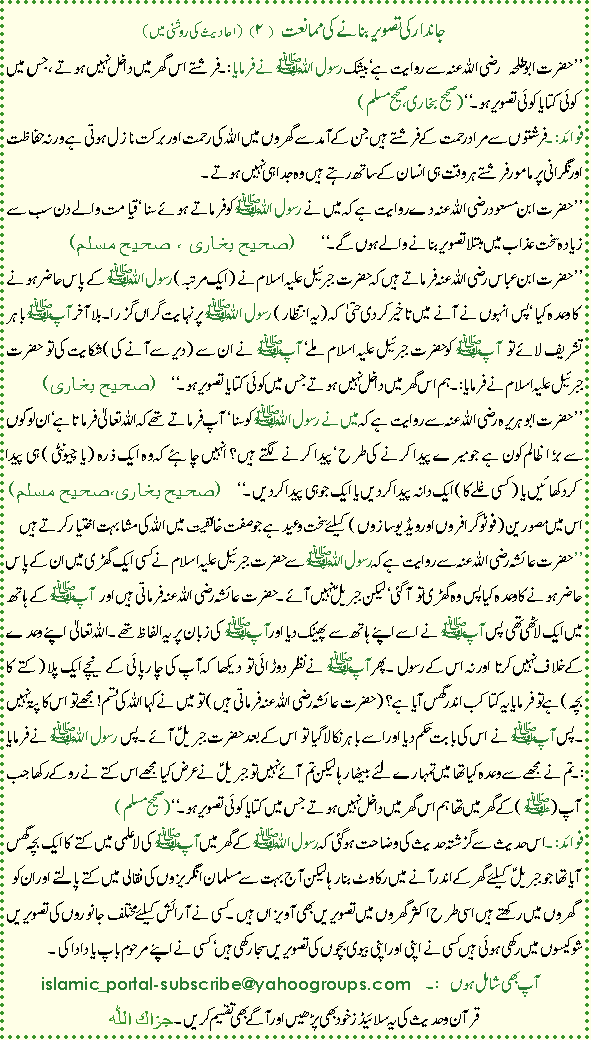 جاندار کی تصویر بنانے کی ممانعت (۲) (احادیث کی روشنی میں)
’’حضرت ابوطلحہ رضی اللہ عنہ سے روایت ہے‘ بیشک رسول اللہ ﷺ نے فرمایا:۔فرشتے اس گھر میں داخل نہیں ہوتے ، جس میں
کوئی کتا یا کوئی تصویر ہو۔‘‘ (صحیح بخاری،صحیح مسلم)
فوائد:۔فرشتوں سے مراد رحمت کے فرشتے ہیں جن کے آمد سے گھروں میں اللہ کی رحمت اور برکت نازل ہوتی ہے ورنہ حفاظت
اور نگرانی پر مامور فرشتے ہر وقت ہی انسان کے ساتھ رہتے ہیں وہ جدا ہی نہیں ہوتے ۔
’’حضرت ابن مسعود رضی اللہ عنہ دے روایت ہے کہ میں نے رسول اللہ ﷺ کو فرماتے ہوئے سنا ‘ قیامت والے دن سب سے
زیادہ سخت عذاب میں مبتلا تصویر بنانے والے ہوں گے۔‘‘ (صحیح بخاری ، صحیح مسلم)
’’حضرت ابن عباس رضی اللہ عنہ فرماتے ہیں کہ حضرت جبرئیل علیہ اسلام نے (ایک مرتبہ) رسول اللہ ﷺ کے پاس حاضر ہونے
کا وعدہ کیا ‘پس انہوں نے آنے میں تاخیر کردی حتیٰ کہ (یہ انتظار) رسول اللہ ﷺ پر نہایت گراں گزرا۔ بلا آخر آپ ﷺ باہر
تشریف لائے تو آپ ﷺ کو حضرت جبرئیل علیہ اسلام ملے ‘ آپ ﷺ نے ان سے (دیر سے آنے کی) شکایت کی تو حضرت
جبرئیل علیہ اسلام نے فرمایا:۔ ہم اس گھر میں داخل نہیں ہوتے جس میں کوئی کتا یا تصویر ہو۔‘‘ (صحیح بخاری)
’’حضرت ابو ہریرہ رضی اللہ عنہ سے روایت ہے کہ میں نے رسول اللہ ﷺ کو سنا ‘ آپ فرماتے تھے کہ اللہ تعالیٰ فرماتا ہے‘ ان لوگوں
سے بڑا ظالم کون ہے جو میرے پیدا کرنے کی طرح ‘ پیدا کرنے لگتے ہیں؟ انہیں چاہئے کہ وہ ایک ذرہ (یا چیونٹی) ہی پیدا
کر دکھائیں یا (کسی غلے کا) ایک دانہ پیدا کردیں یا ایک جو ہی پیدا کردیں ۔‘‘ (صحیح بخاری،صحیح مسلم)
اس میں مصورین (فوٹوگرافروں اور ویڈیو سازوں) کیلئے سخت وعید ہے جو صفت خالقیت میں اللہ کی مشابہت اختیار کرتے ہیں
’’حضرت عائشہ رضی اللہ عنہ سے روایت ہے کہ رسول اللہ ﷺ سے حضرت جبرئیل علیہ اسلام نے کسی ایک گھڑی میں ان کے پاس
حاضر ہونے کا وعدہ کیا پس وہ گھڑی تو آگئی‘ لیکن جبریلؑ نہیں آئے ۔ حضرت عائشہ رضی اللہ عنہ فرماتی ہیں اور آپ ﷺ کے ہاتھ
میں ایک لاٹھی تھی پس آپ ﷺ نے اسے اپنے ہاتھ سے پھینک دیا اور آپ ﷺ کی زبان پر یہ الفاظ تھے ۔ اللہ تعالیٰ اپنے وعدے
کے خلاف نہیں کرتا اور نہ اس کے رسول ۔ پھر آپ ﷺ نے نظر دوڑائی تو دیکھا کہ آپ کی چارپائی کے نیچے ایک پلا (کتے کا
بچہ) ہے تو فرمایا یہ کتا کب اندر گھس آیا ہے ؟ (حضرت عائشہ رضی اللہ عنہ فرماتی ہیں) تو میں نے کہا اللہ کی قسم! مجھے تو اس کا پتہ نہیں
۔ پس آپ ﷺ نے اس کی بابت حکم دیا اور اسے باہر نکالا گیا تو اس کے بعد حضرت جبریلؑ آئے ۔ پس رسول اللہ ﷺ نے فرمایا
:۔تم نے مجھے سے وعدہ کیا تھا میں تمہارے لئے بیٹھا رہا لیکن تم آئے نہیں تو جبریلؑ نے عرض کیا مجھے اس کتے نے روکے رکھا جب
آپ (ﷺ) کے گھر میں تھا ہم اس گھر میں داخل نہیں ہوتے جس میں کتا یا کوئی تصویر ہو۔‘‘ (صحیح مسلم)
فوائد:۔ اس حدیث سے گزشتہ حدیث کی وضاحت ہوگئی کہ رسول اللہ ﷺ کے گھر میں آپ ﷺ کی لاعلمی میں کتے کا ایک بچہ گھس
آیا تھا جو جبریلؑ کیلئے گھر کے اندر آنے میں رکاوٹ بنا رہا لیکن آج بہت سے مسلمان انگریزوں کی نقالی میں کتے پالتے اور ان کو
گھروں میں رکھتے ہیں اسی طرح اکثر گھروں میں تصویریں بھی آویزاں ہیں ۔ کسی نے آرائش کیلئے مختلف جانوروں کی تصویریں
شوکیسوں میں رکھی ہوئی ہیں کسی نے اپنی اور اپنی بیوی بچوں کی تصویریں سجا رکھی ہیں‘ کسی نے اپنے مرحوم باپ یا دادا کی ۔
آپ بھی شامل ہوں :۔ islamic_portal-subscribe@yahoogroups.com
قرآن و حدیث کی یہ سلائیڈز خود بھی پڑھیں اور آگے بھی تقسیم کریں ۔ جزاك الله